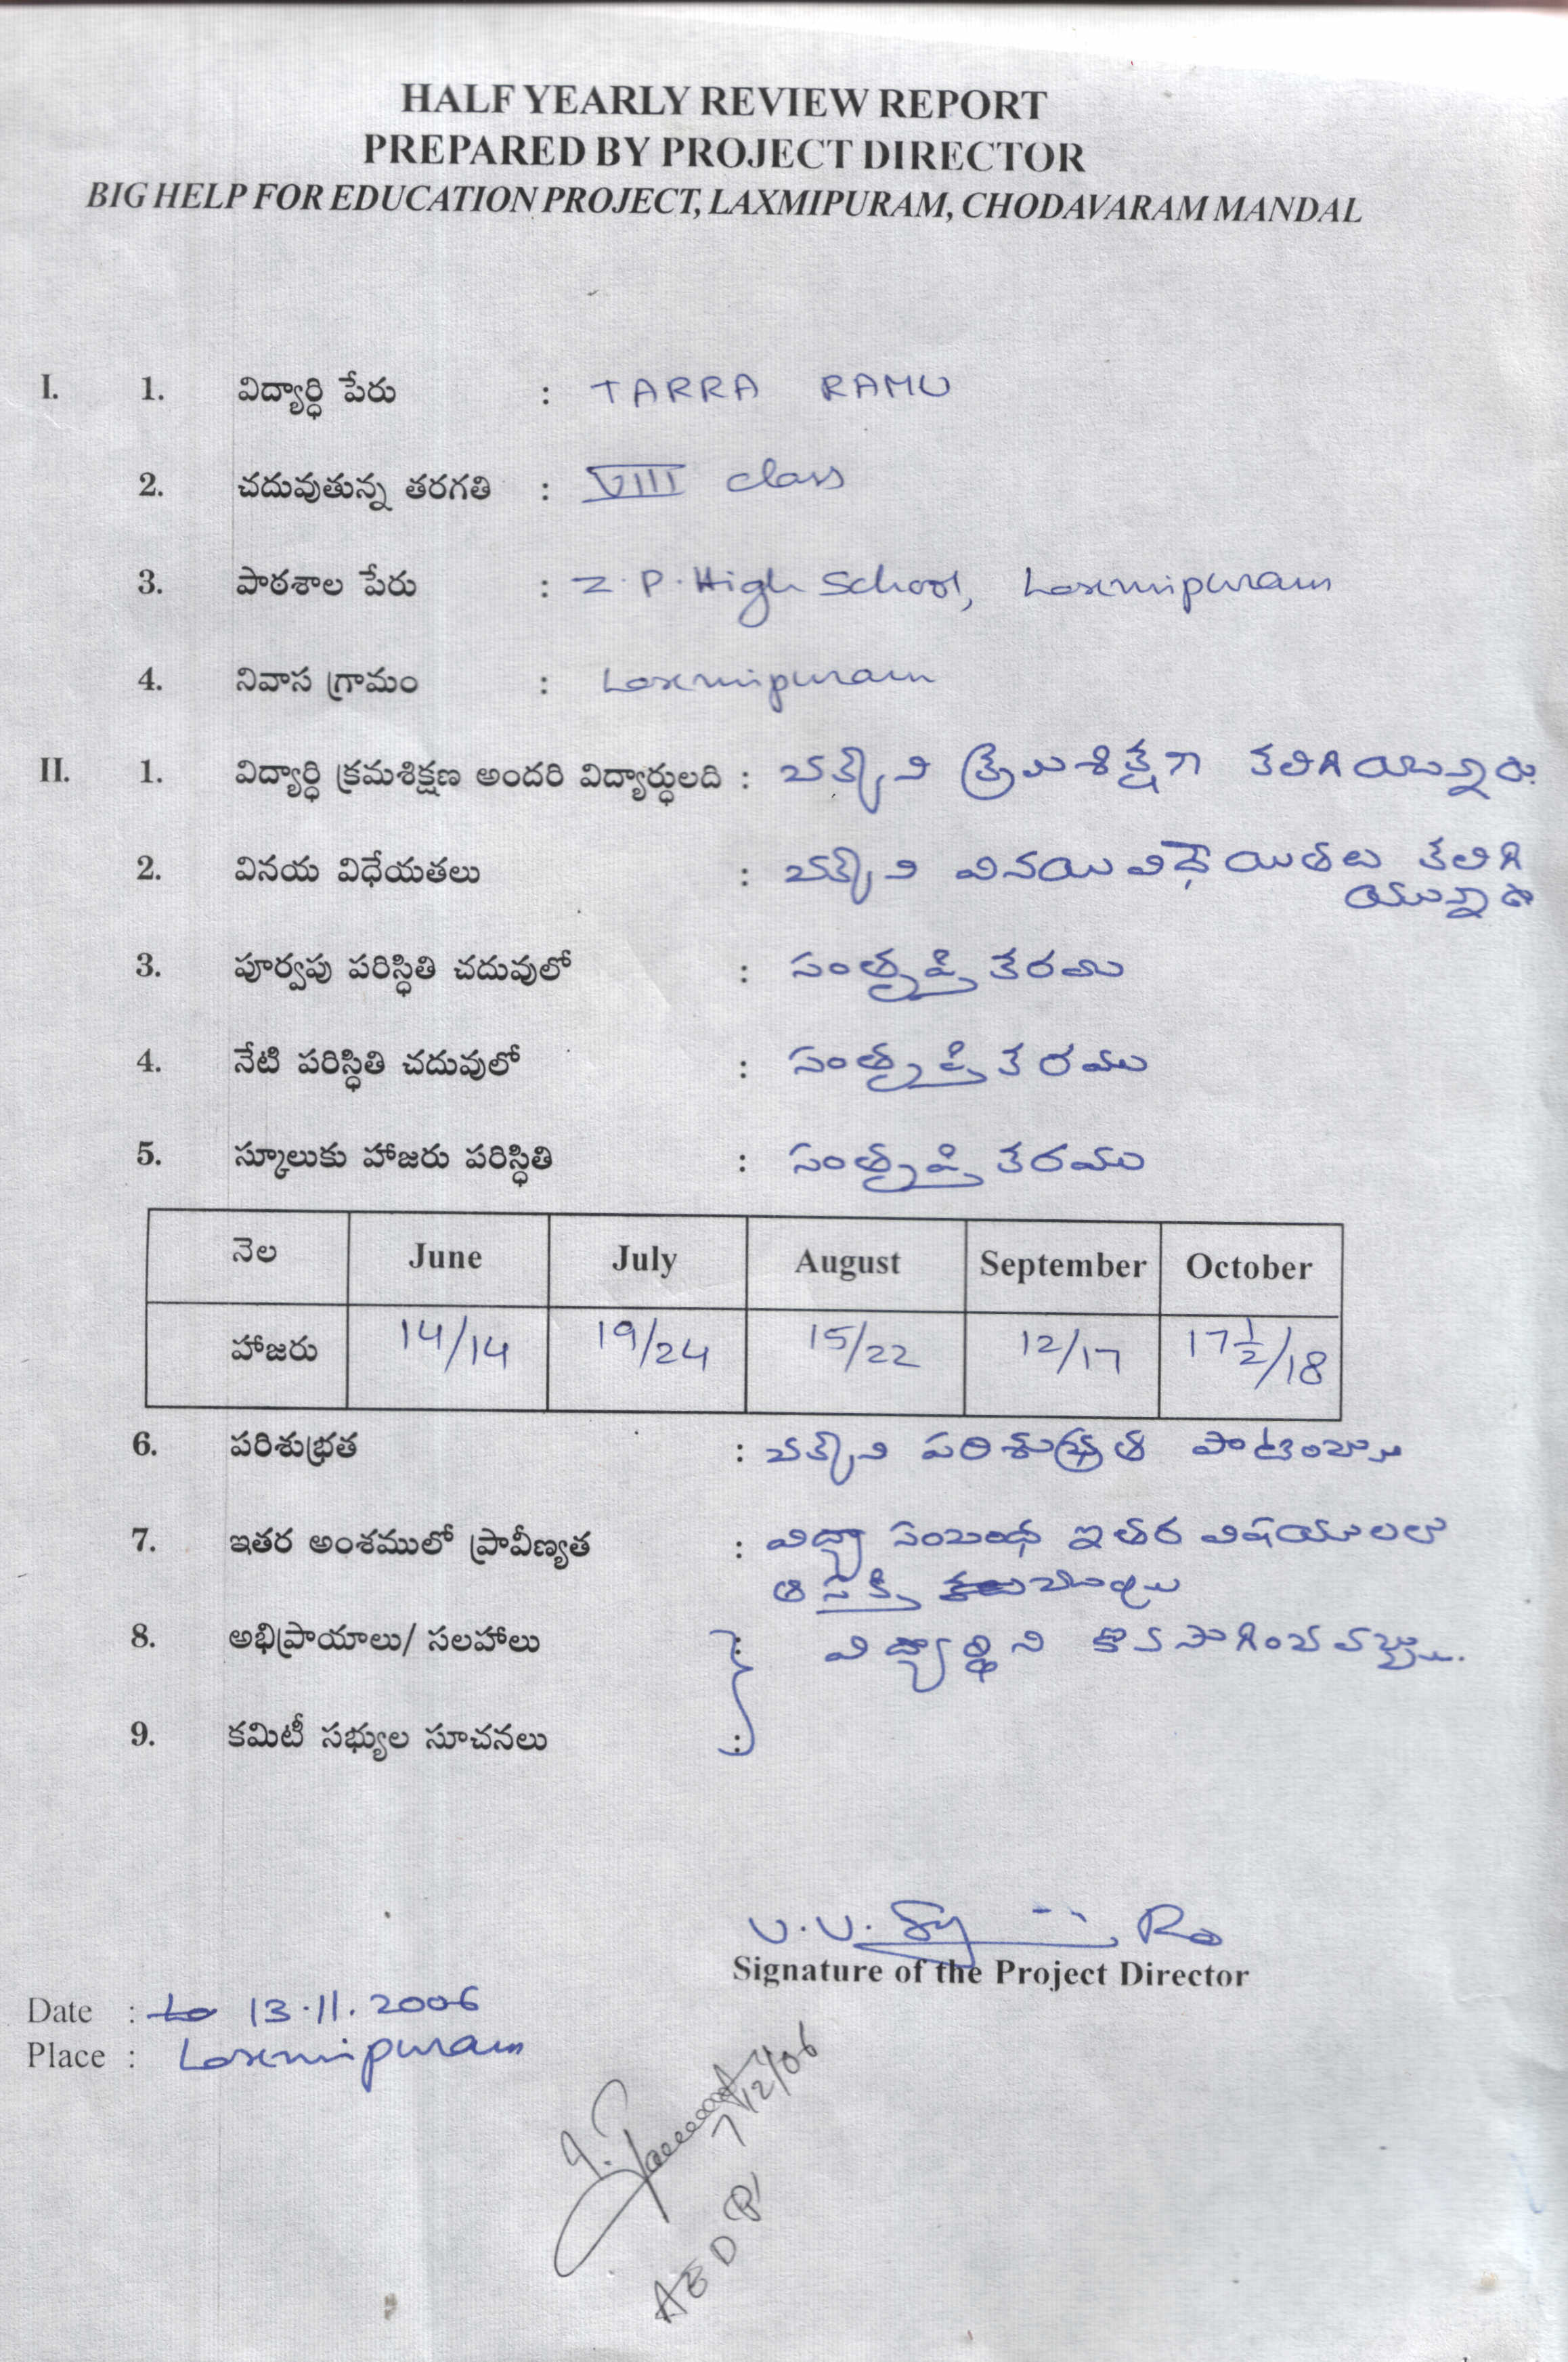 HALF YEARLY REVIEW REPORT
PREPARED BY PROJECT DIRECTOR
BIG HELP FOR EDUCATION PROJECT, LAXMIPURAM, CHODAVARAM MANDAL
I. 1. విద్యార్ధి పేరు : TARRA RAMU
2. చదువుతున్న తరగతి : VIII class
3. పాఠశాల పేరు : Z.P. High School, Laxmipuram
4. నివాస గ్రామం : Laxmipuram
II. 1. విద్యార్ధి క్రమశిక్షణ అందరి విద్యార్ధులది : చక్కని క్రమశిక్షణ కలిగియున్నారు.
2. వినయ విధేయతలు : చక్కని వినయవిధేయతలు కలిగి
3. పూర్వపు పరిస్ధితి చదువులో : సంతృప్తి కరము
4. నేటి పరిస్ధితి చదువులో : సంతృప్తి కరము
5. స్కూలుకు హాజరు పరిస్ధితి : సంతృప్తి కరము
నెల June July August September October
హాజరు 14/14 19/24 15/22 12/17 17 1/2/18
6. పరిశుభ్రత : చక్కని పరిశుభ్రత
7. ఇతర అంశములో ప్రావీణ్యత : విద్యా సంబంధ ఇతర విషయములలో
ఆసక్తి
8. అభిప్రాయాలు/ సలహాలు : విద్యార్థిని కొనసాగించవచ్చు.
9. కమిటీ సభ్యుల సూచనలు :
Signature of the Project Director
Date : 13.11.2006
Place : Laxmipuram
7/12/06